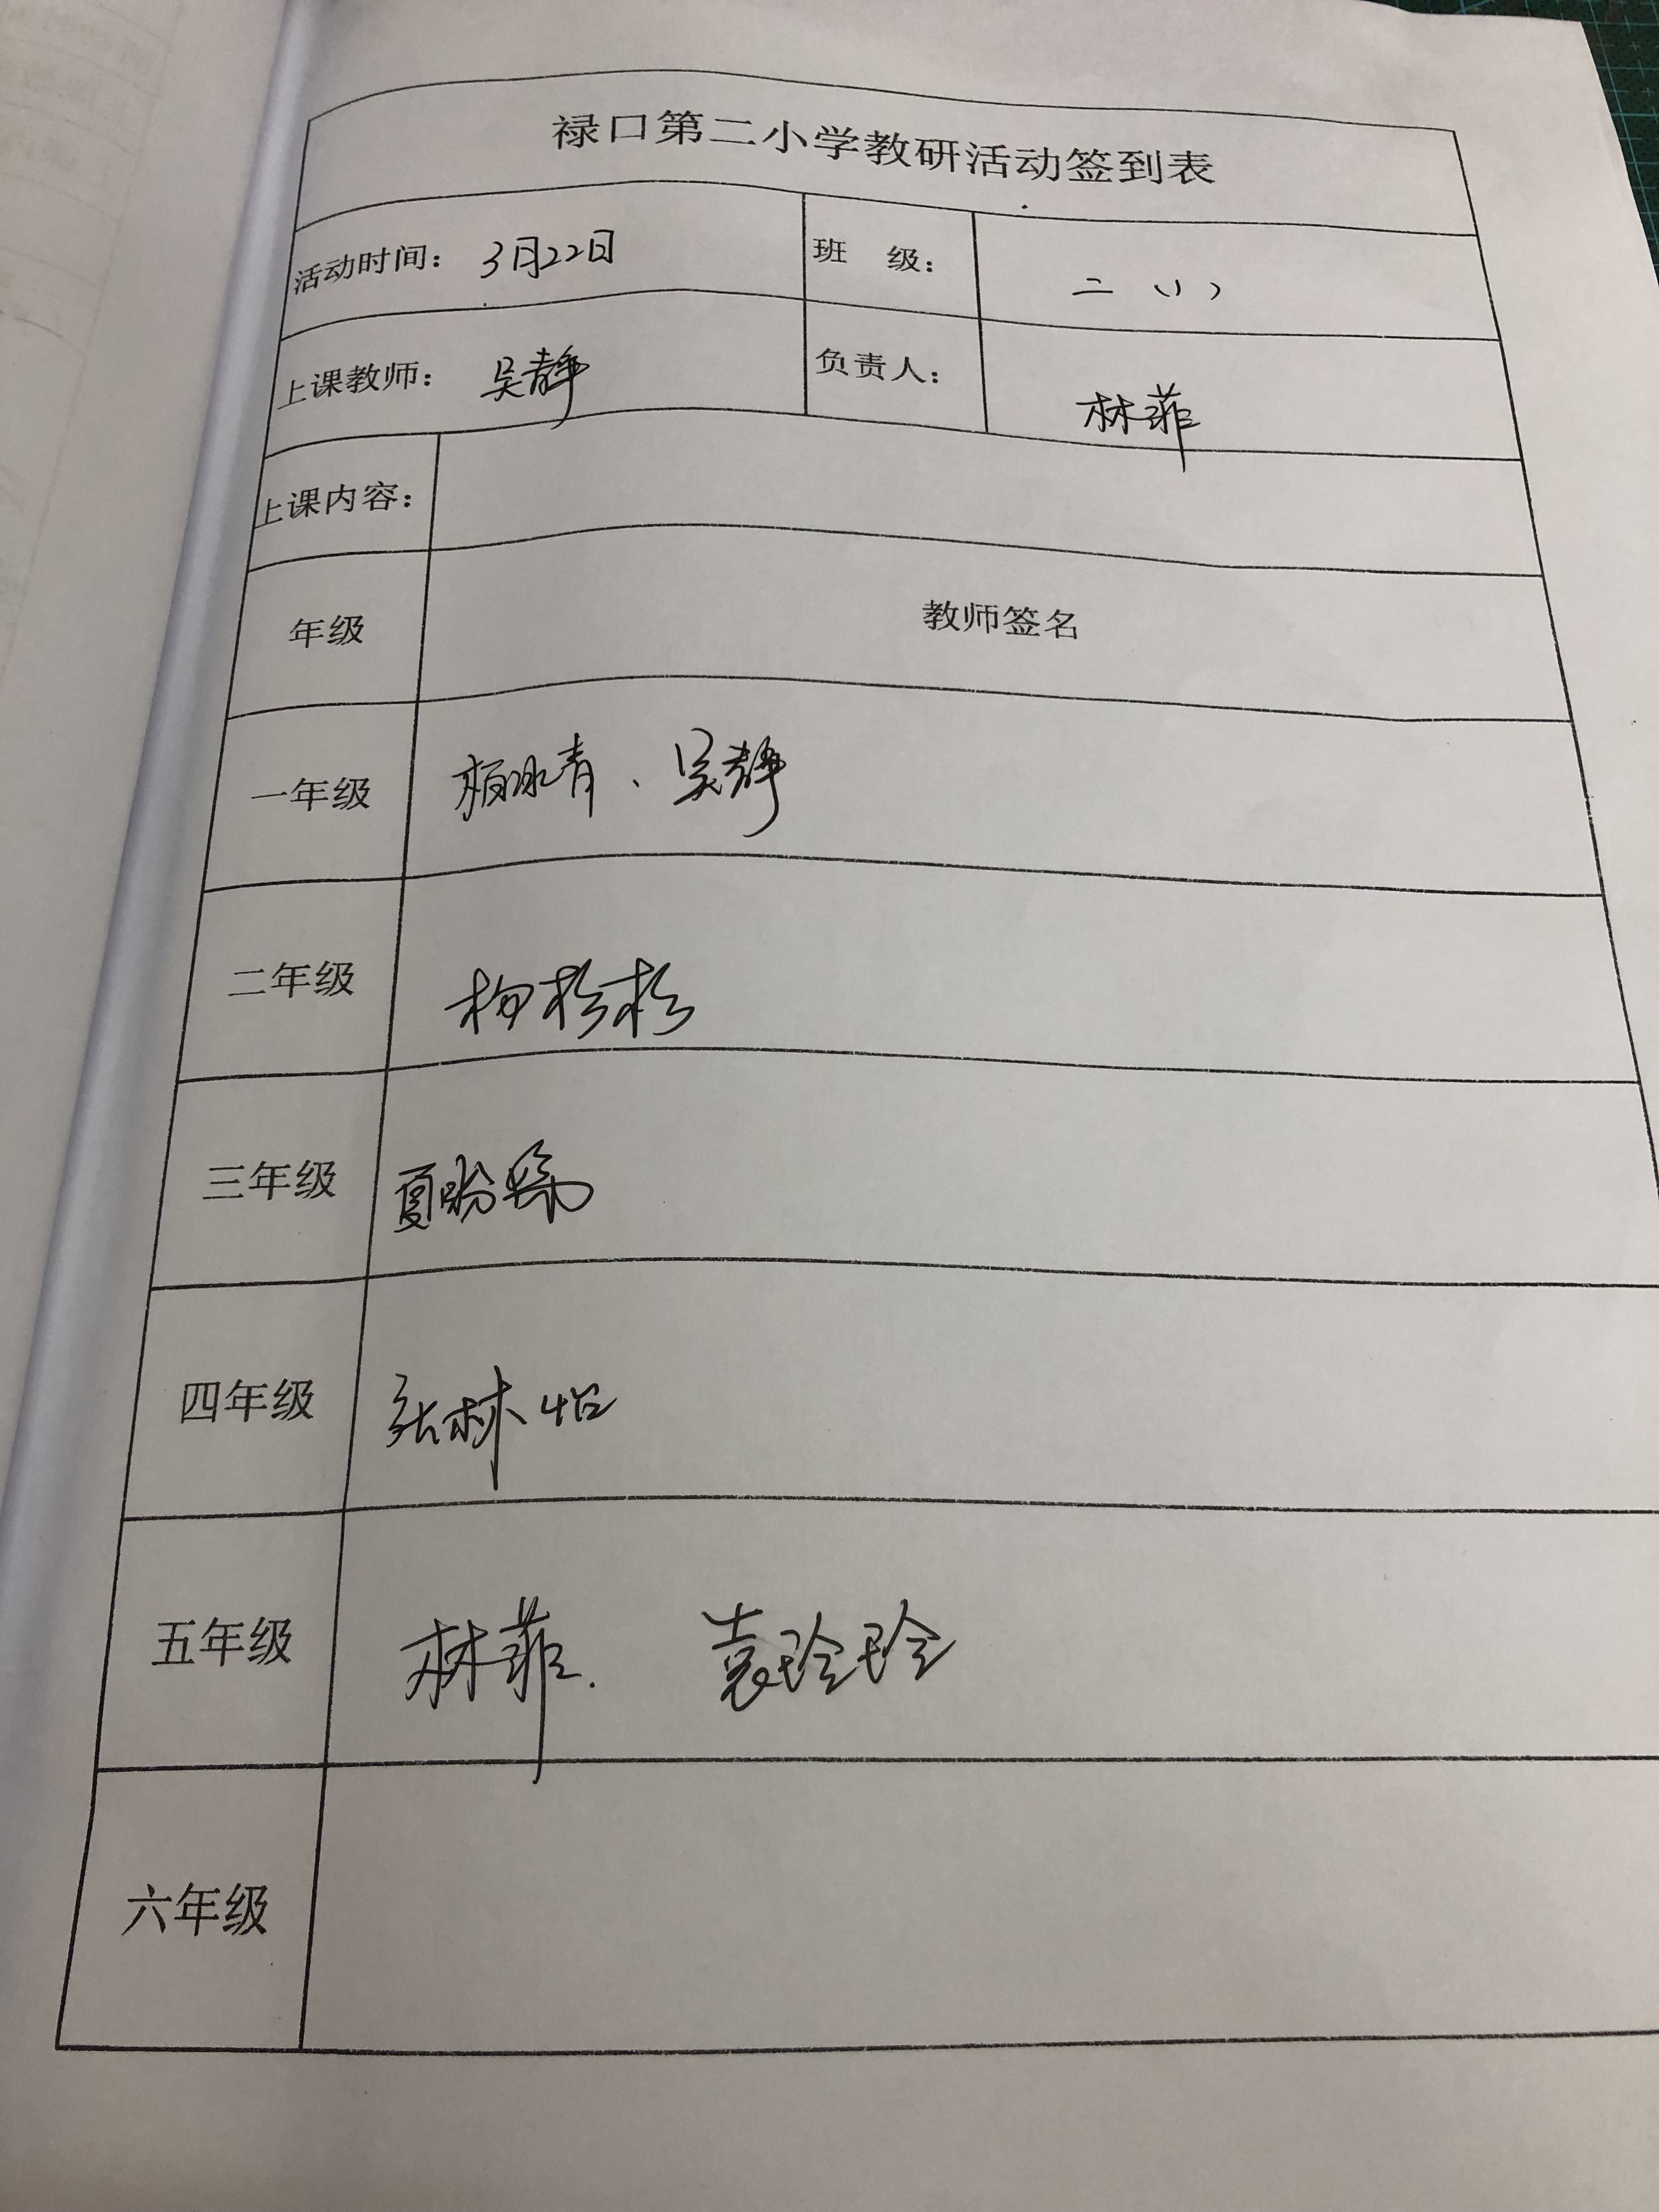 禄口第二小学教研活动签到表
活动时间: 3月22日 班 级: 二(1)
上课教师: 吴静 负责人: 林菲
上课内容:
年级 教师签名
一年级 杨冰青、吴静
二年级 柳杉杉
三年级 夏盼
四年级 张林怡
五年级 林菲. 袁玲玲
六年级